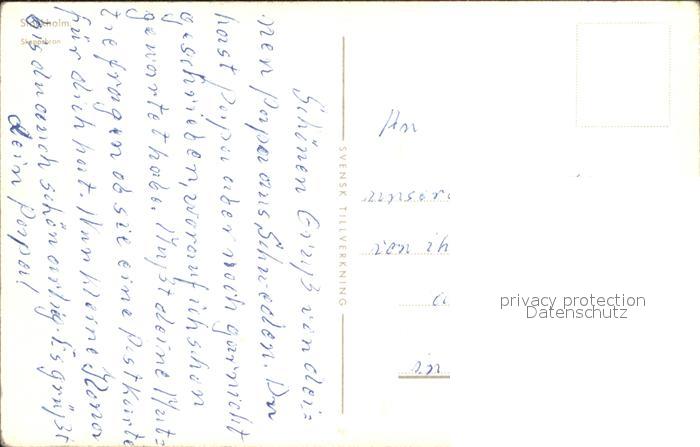 Stockholm
Skeppsbron
Schönen Gruß von dei=
nen Papa aus Schweden. Du
hast Papa aber noch gar nicht
geschrieben, worauf ich schon
gewartet habe. Mußt deine Mut=
ti fragen ob sie eine Postkarte
für dich hat. Nun kleine
bis du auch schön artig. Es grüßt
dein Papa!
SVENSK TILLVERKNING
An
in
privacy protection
Datenschutz